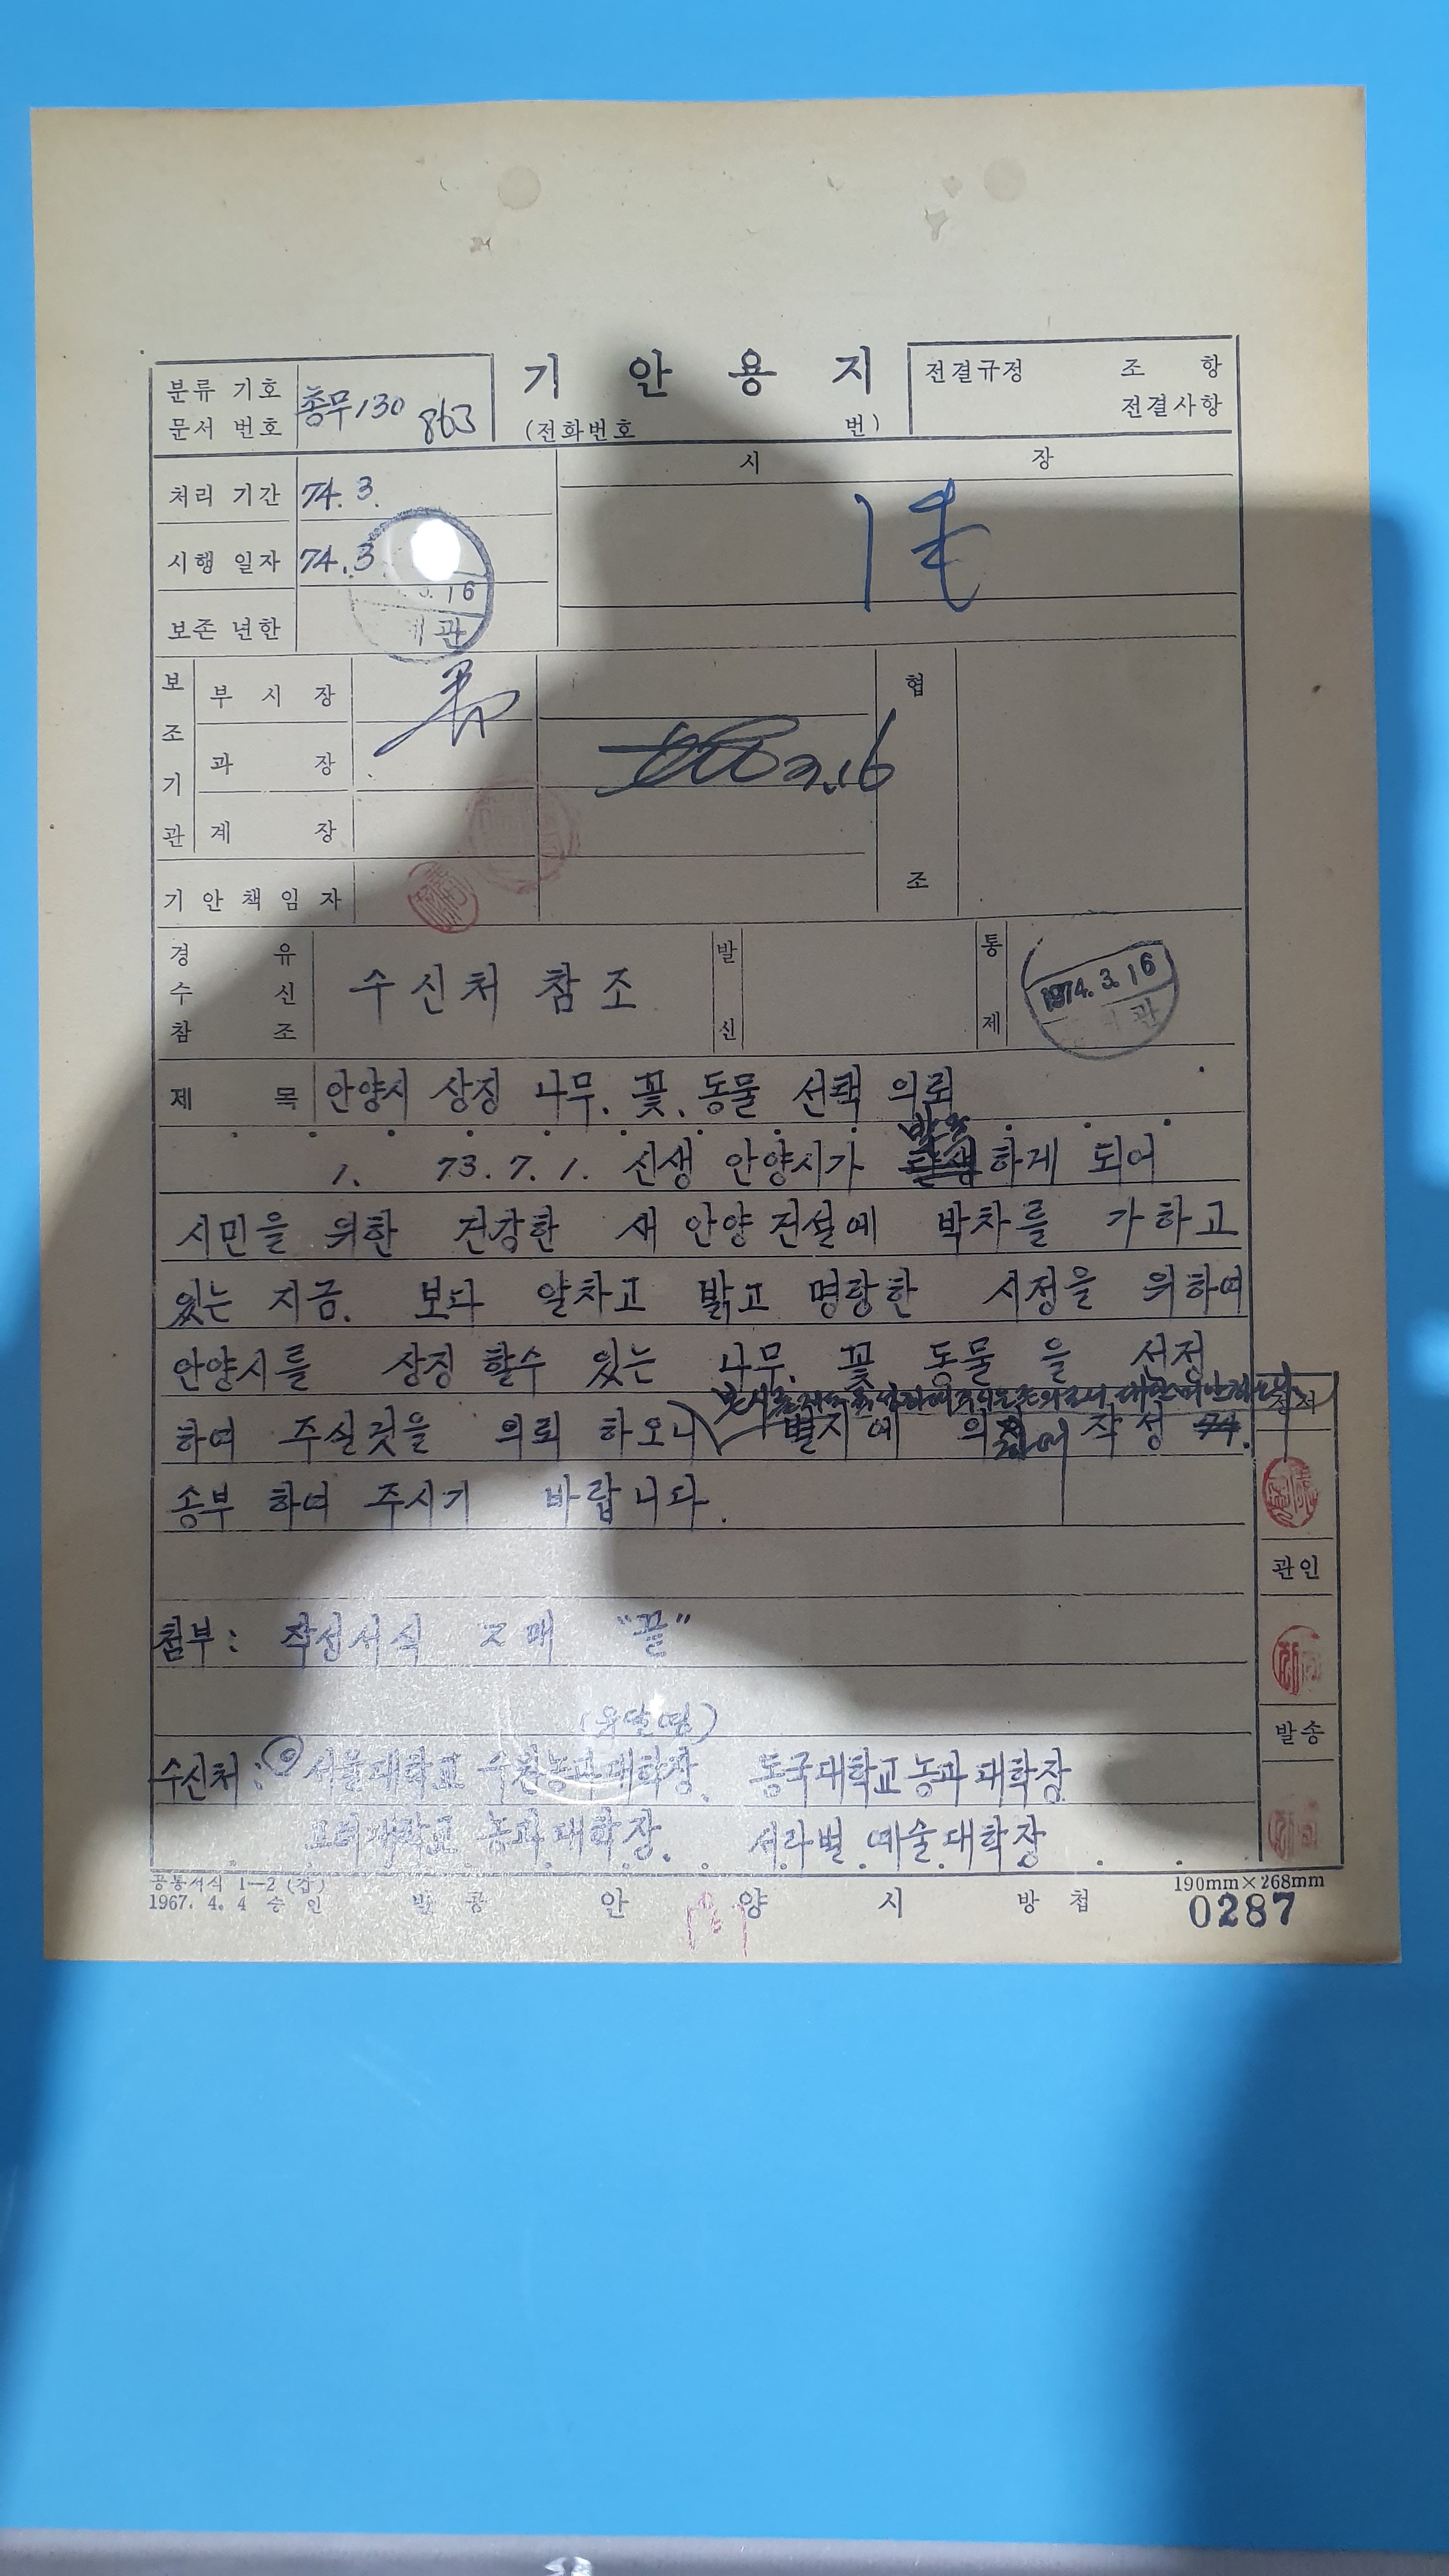 분류 기호
문서 번호
총무130 863
기 안 용 지
(전화번호 번)
전결규정 조 항
전결사항
처리 기간 74. 3.
시 장
시행 일자 74. 3
16
관
보존 년한
보조기관
부 시 장
과 장
3.16
계 장
협조
기 안 책 임 자
경 유
수 신
참 조
수신처 참조
발신
통제
1974. 3. 16
관
제 목 안양시 상징 나무. 꽃. 동물 선택 의뢰
1. 73. 7. 1. 신생 안양시가 하게 되어
시민을 위한 건강한 새 안양 건설에 박차를 가하고
있는 지금. 보다 알차고 밝고 명랑한 시정을 위하여
안양시를 상징 할수 있는 나무. 꽃 동물 을 선정
하여 주실것을 의뢰 하오니 별지에 의 작성
송부 하여 주시기 바랍니다.
첨부: 작성서식 2매 "끝"
관인
발송
수신처: 서울대학교 수원농과대학장. 동국대학교 농과 대학장
고려대학교 농과 대학장. 서라벌 예술대학장
공통서식 1-2 (갑)
1967. 4. 4 승 인
반 공 안 양 시 방 첩
190mm×268mm
0287